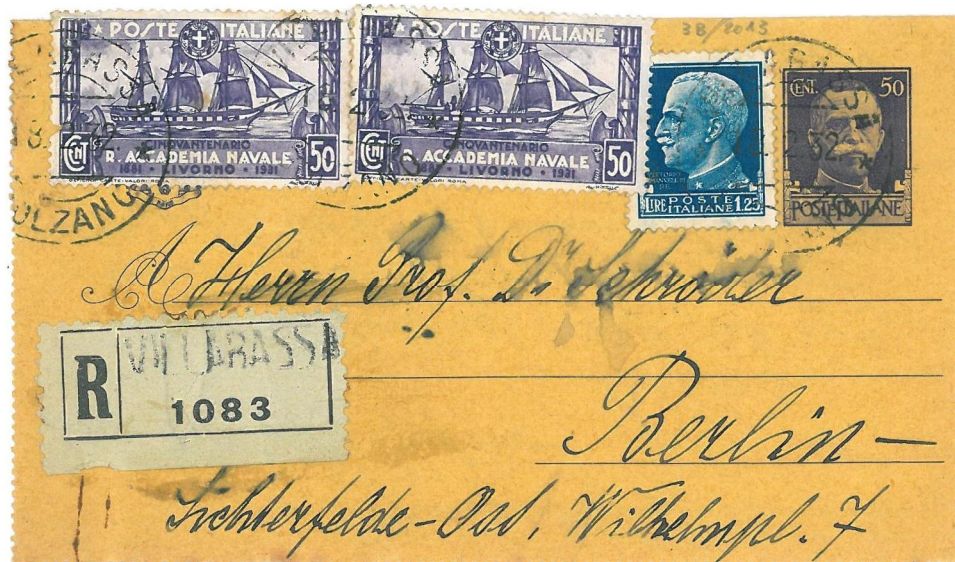 38/2013
POSTE ITALIANE
CINQVANTENARIO
R. ACCADEMIA NAVALE
LIVORNO · 1931
CENT 50
POSTE ITALIANE
CINQVANTENARIO
R. ACCADEMIA NAVALE
LIVORNO · 1931
CENT 50
LIRE POSTE ITALIANE 1.25
CENT. 50
POSTE ITALIANE
BOLZANO
2.32
A Herrn Prof. Dr Schröder
R VILLABASSA
1083
Berlin-
Lichterfelde-Ost, Wilhelmpl. 7